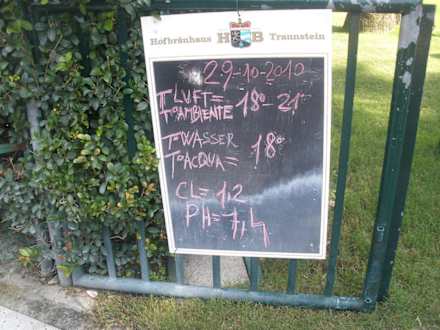 Hofbräuhaus HB Traunstein
29-10-2010
T° LUFT=
T° AMBIENTE 18°-21°
T° WASSER
T° ACQUA= 18°
CL= 1,2
PH= 7,4